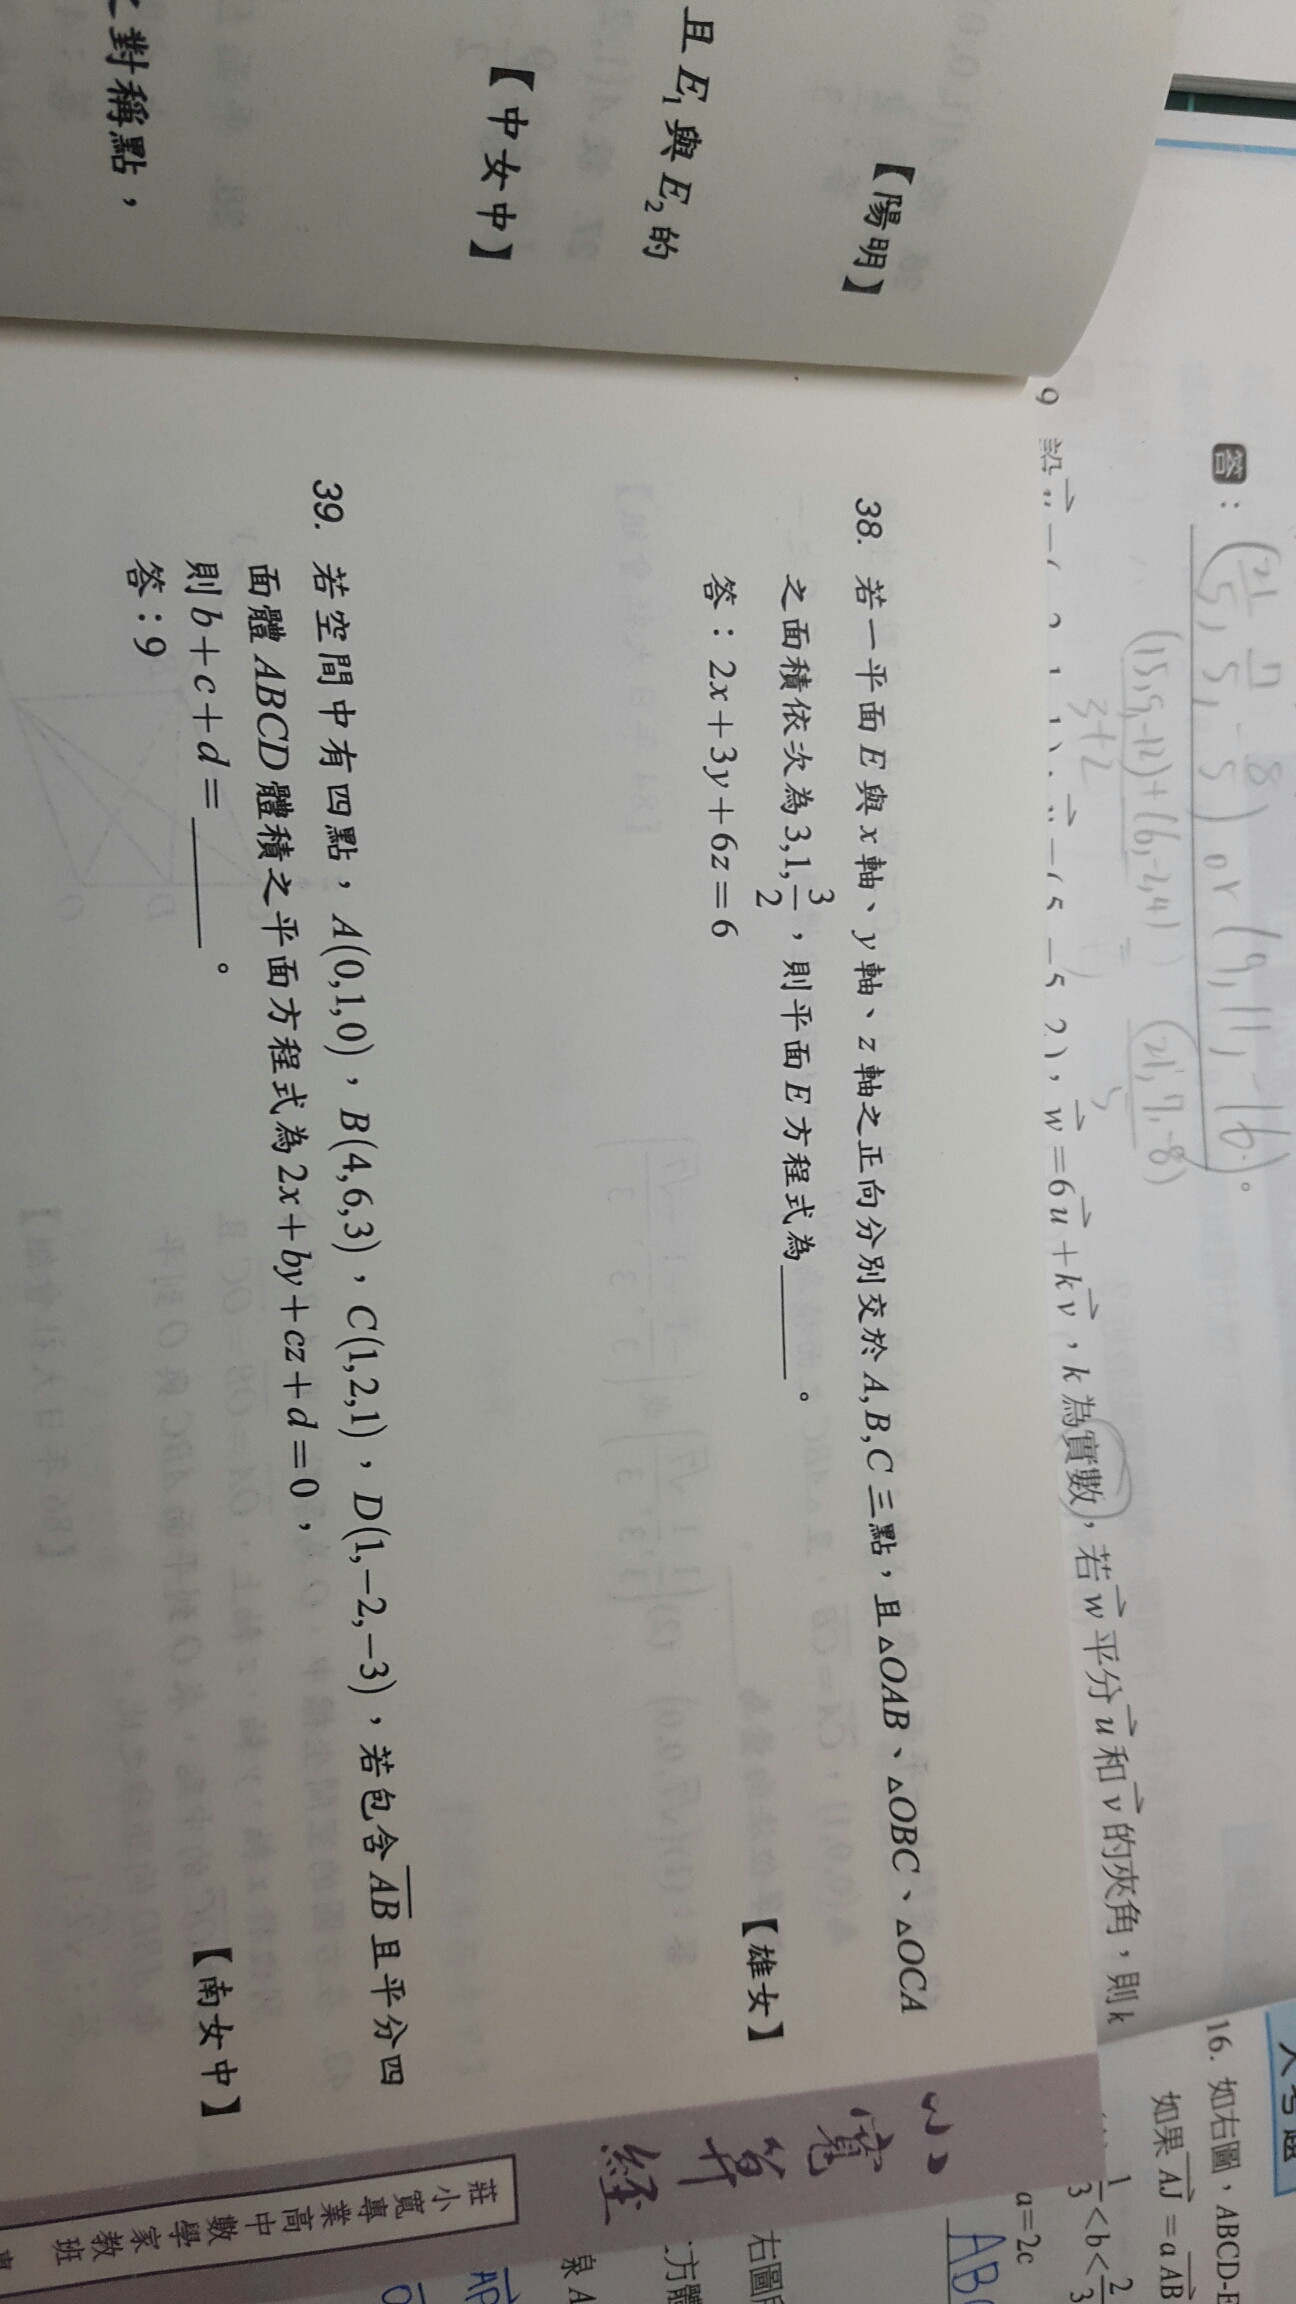 【陽明】
且E₁與E₂的
【中女中】
對稱點，
答：(21/5, 7/5, -8/5) or (9, 11, -16)。
(15,9,-12)+(6,-2,4)
3+2
=
(21,7,-8)
5
w=6u+kv，k為實數，若w平分u和v的夾角，則k
38. 若一平面E與x軸、y軸、z軸之正向分別交於A,B,C三點，且△OAB、△OBC、△OCA
之面積依次為3,1,3/2，則平面E方程式為______。
【雄女】
答：2x+3y+6z=6
39. 若空間中有四點，A(0,1,0)，B(4,6,3)，C(1,2,1)，D(1,-2,-3)，若包含AB且平分四
面體ABCD體積之平面方程式為2x+by+cz+d=0，
則b+c+d=______。
【南女中】
答：9
小寬算經
莊小寬專業高中數學家教班
16. 如右圖，ABCD-E
如果AJ=aAB
1/3<b<2/3
a=2c
右圖
方體